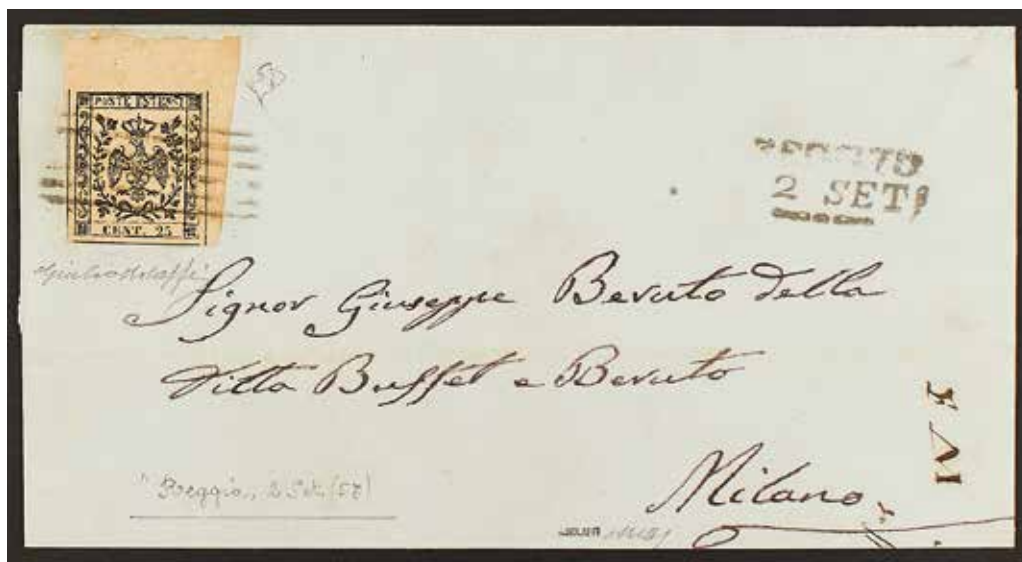 POSTE ESTENSI
CENT. 25
2 SET
Signor Giuseppe Beruto della
Ditta Buffet e Beruto
Milano
"Reggio, 2 Set. (57)